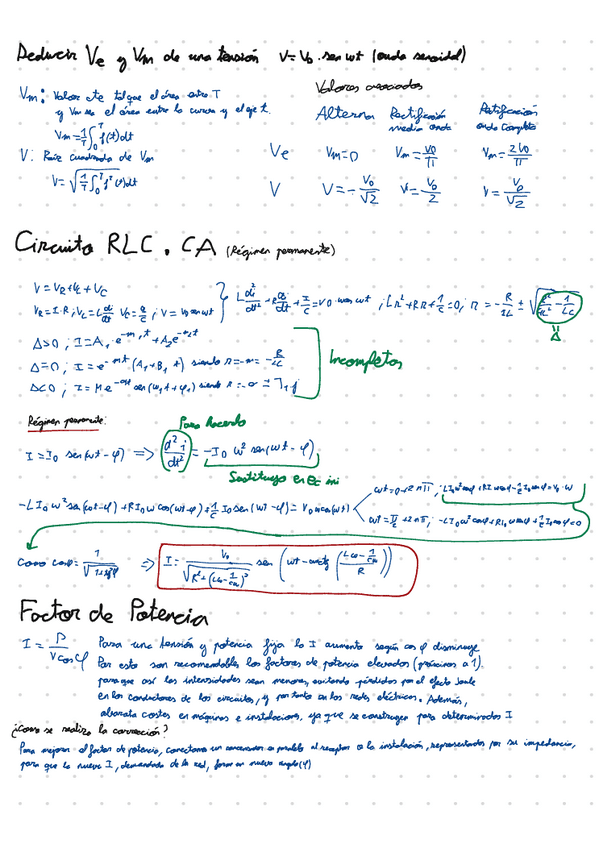 Deducir Ve y Vm de una tensión V = V₀ . sen wt (onda senoidal)
Vm: Valor cte tal que el área entre T
y Vm sea el área entre la curva y el eje t.
Vm = 1/T ∫₀ᵀ f(t)dt
V: Raiz cuadrada de Vm
V = √(1/T ∫₀ᵀ f²(t)dt)
Valores asociados
Alterna Rectificación media onda Rectificación onda completa
Ve Vm=0 Vm = V0/π Vm = 2V0/π
V V = V₀/√2 V = V₀/2 V = V₀/√2
Circuito RLC . CA (Régimen permanente)
V = VR+VL+VC
VR = I·R ; VL = L di/dt
Δ>0 ; I = A₁
Δ=0 ; I = (A₁+B₁ t) siendo
Δ<0 ;
Incompletos
Régimen permanente:
Para hacerlo
I = I₀ sen(wt - φ) => d²i/dt² = -I₀ w² sen(wt - φ)
Sustituyo en ec ini
-L I₀ w² sen(wt-φ) + R I₀ w cos(wt-φ) + 1/C I₀ sen(wt-φ) = V₀ w cos(wt)
Como cosφ = => I = V₀/√(R²+(Lw-1/cw)²) sen (wt - arctg ((Lw - 1/cw)/R))
Factor de Potencia
I = P/(V cos φ)
Para una tensión y potencia fija la I aumenta según cos φ disminuye
Por esto son recomendables los factores de potencia elevados (próximos a 1).
para que así las intensidades sean menores, evitando pérdidas por el efecto Joule
en los conductores de los circuitos, y por tanto en las redes eléctricas. Además,
abarata costes en máquinas e instalaciones, ya que se construyen para determinadas I
¿Como se realiza la corrección?
Para mejorar el factor de potencia, conectamos un condensador en paralelo al receptor o la instalación, representados por su impedancia,
para que la nueva I, demandada de la red, forme un nuevo angulo (φ)